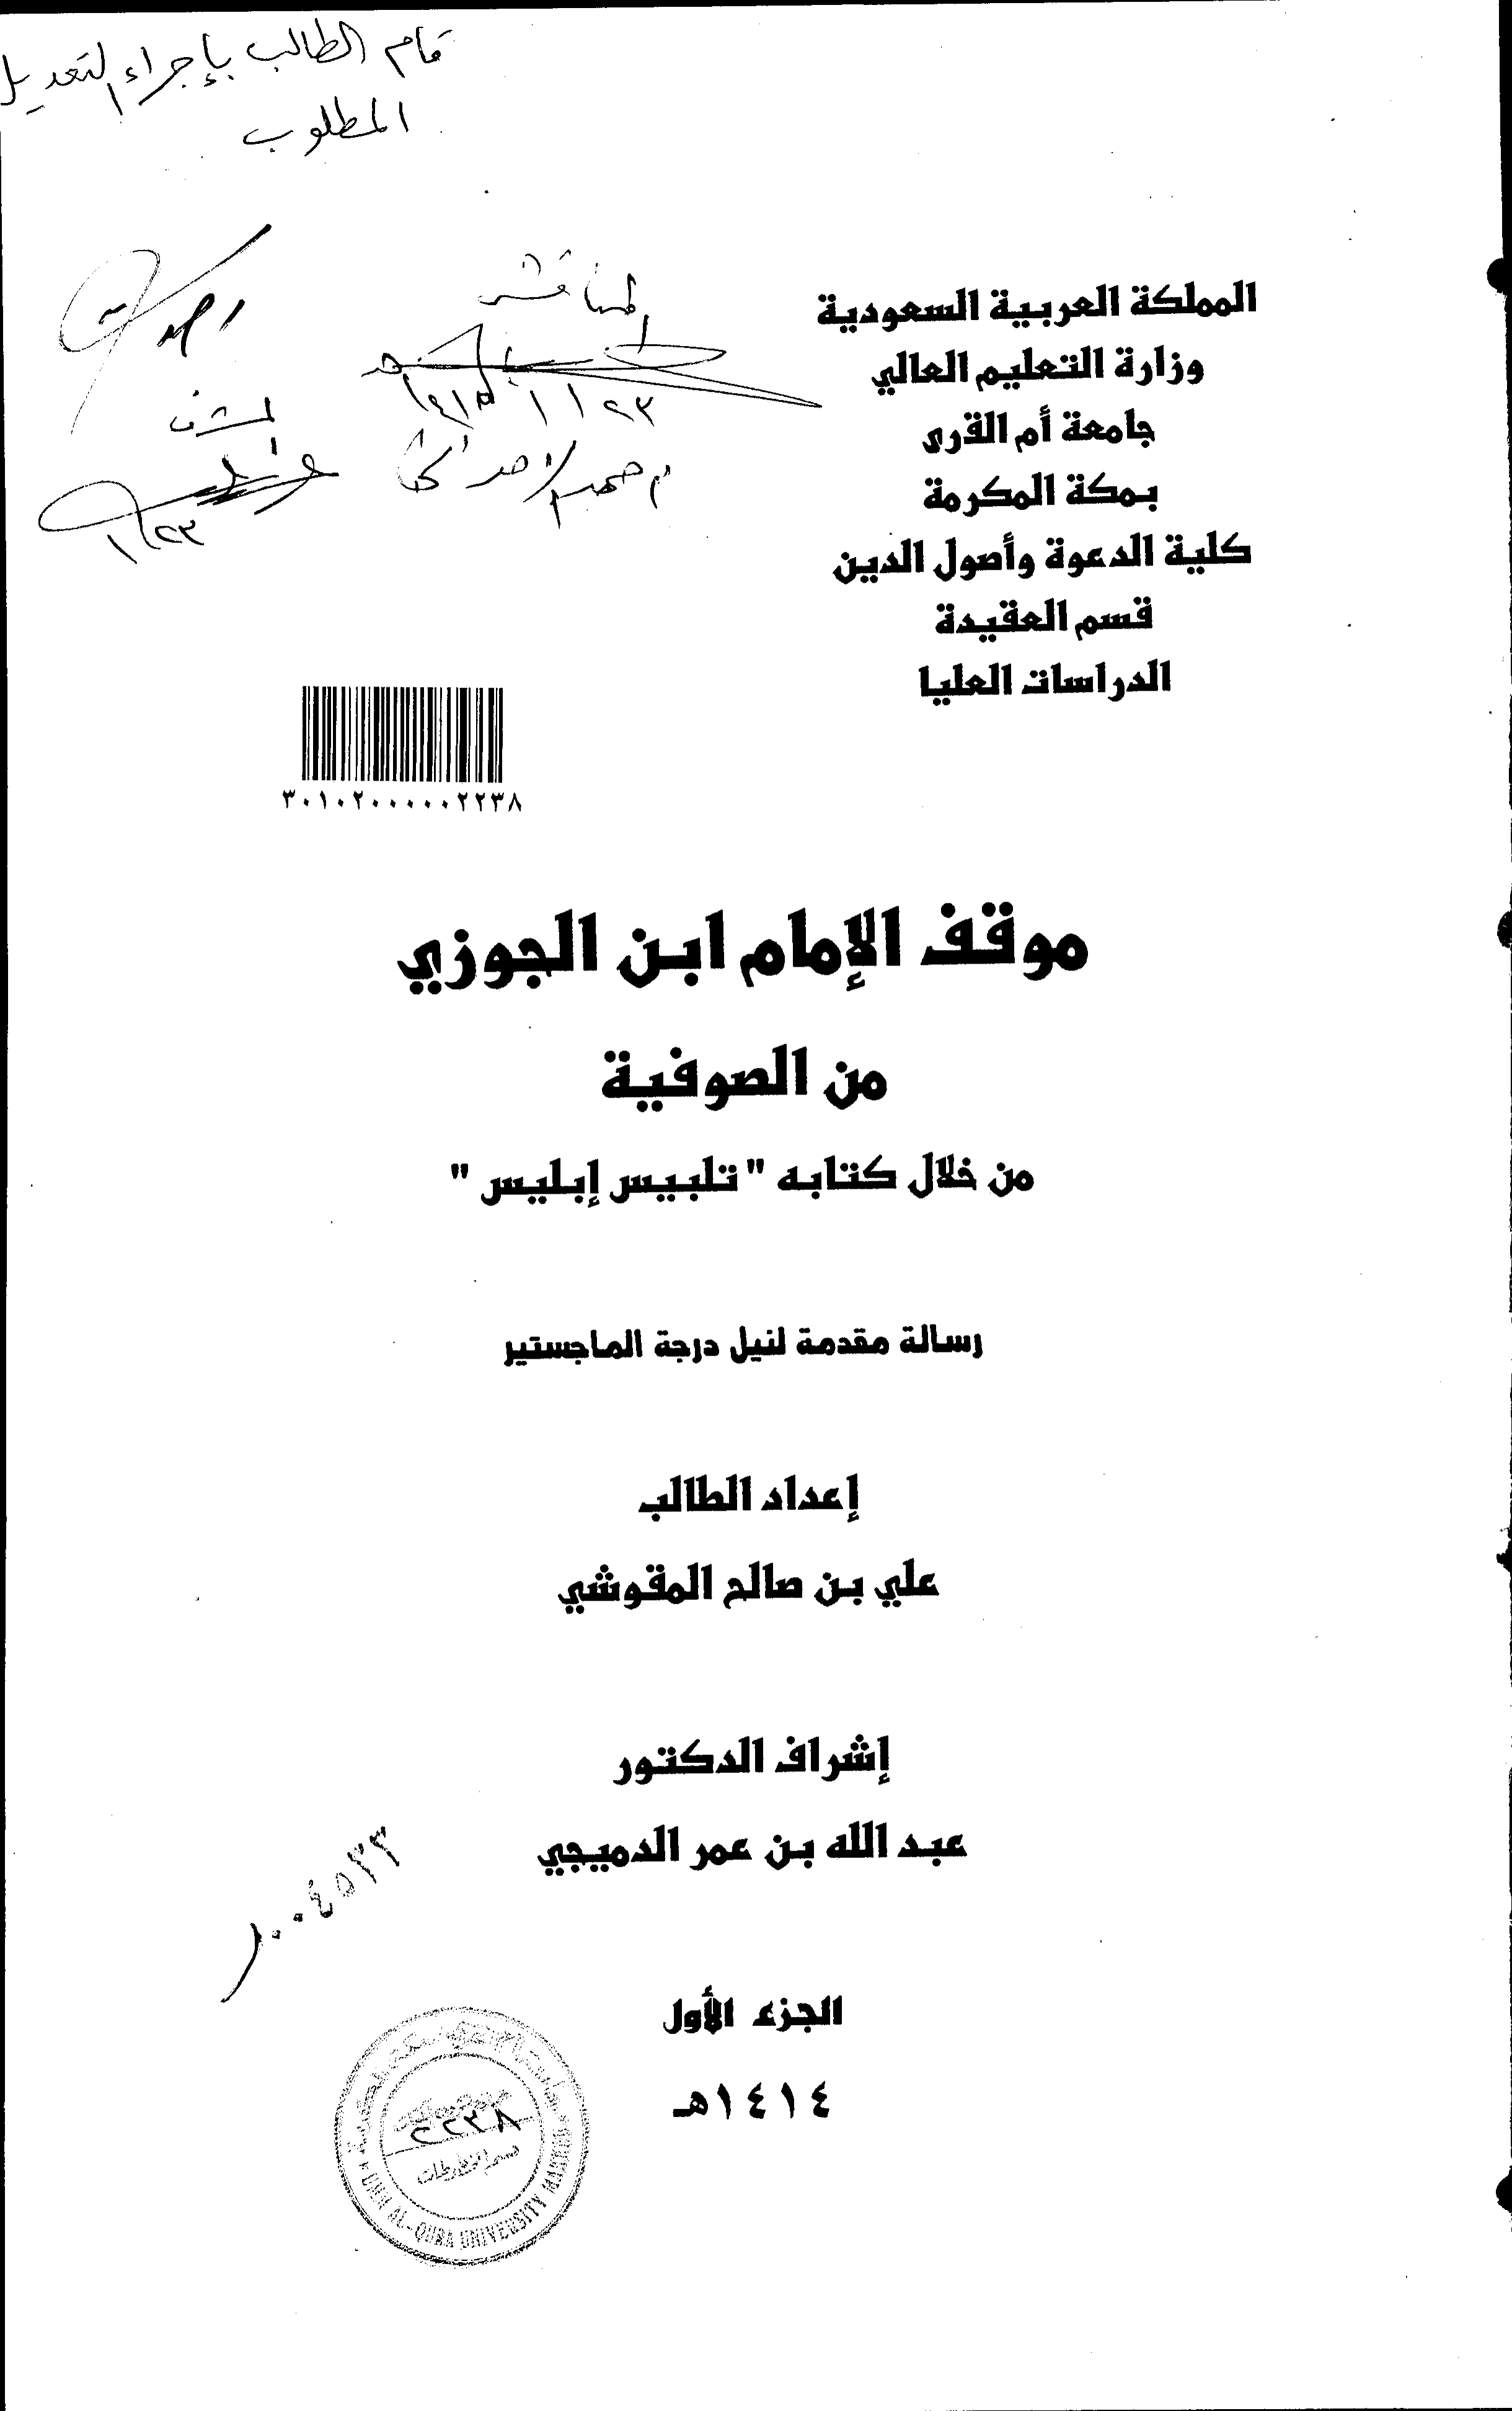 قام الطالب بإجراء التعديل
المطلوب
المملكة العربية السعودية
وزارة التعليم العالي
جامعة أم القرى
بمكة المكرمة
كلية الدعوة وأصول الدين
قسم العقيدة
الدراسات العليا
المناقش
المشرف
٣٠١٠٢٠٠٠٠٠٢٢٣٨
موقف الإمام ابن الجوزي
من الصوفية
من خلال كتابه " تلبيس إبليس "
رسالة مقدمة لنيل درجة الماجستير
إعداد الطالب
علي بن صالح المقوشي
إشراف الدكتور
عبد الله بن عمر الدميجي
الجزء الأول
١٤١٤هـ
٢٢٣٨
UMM AL-QURA UNIVERSITY